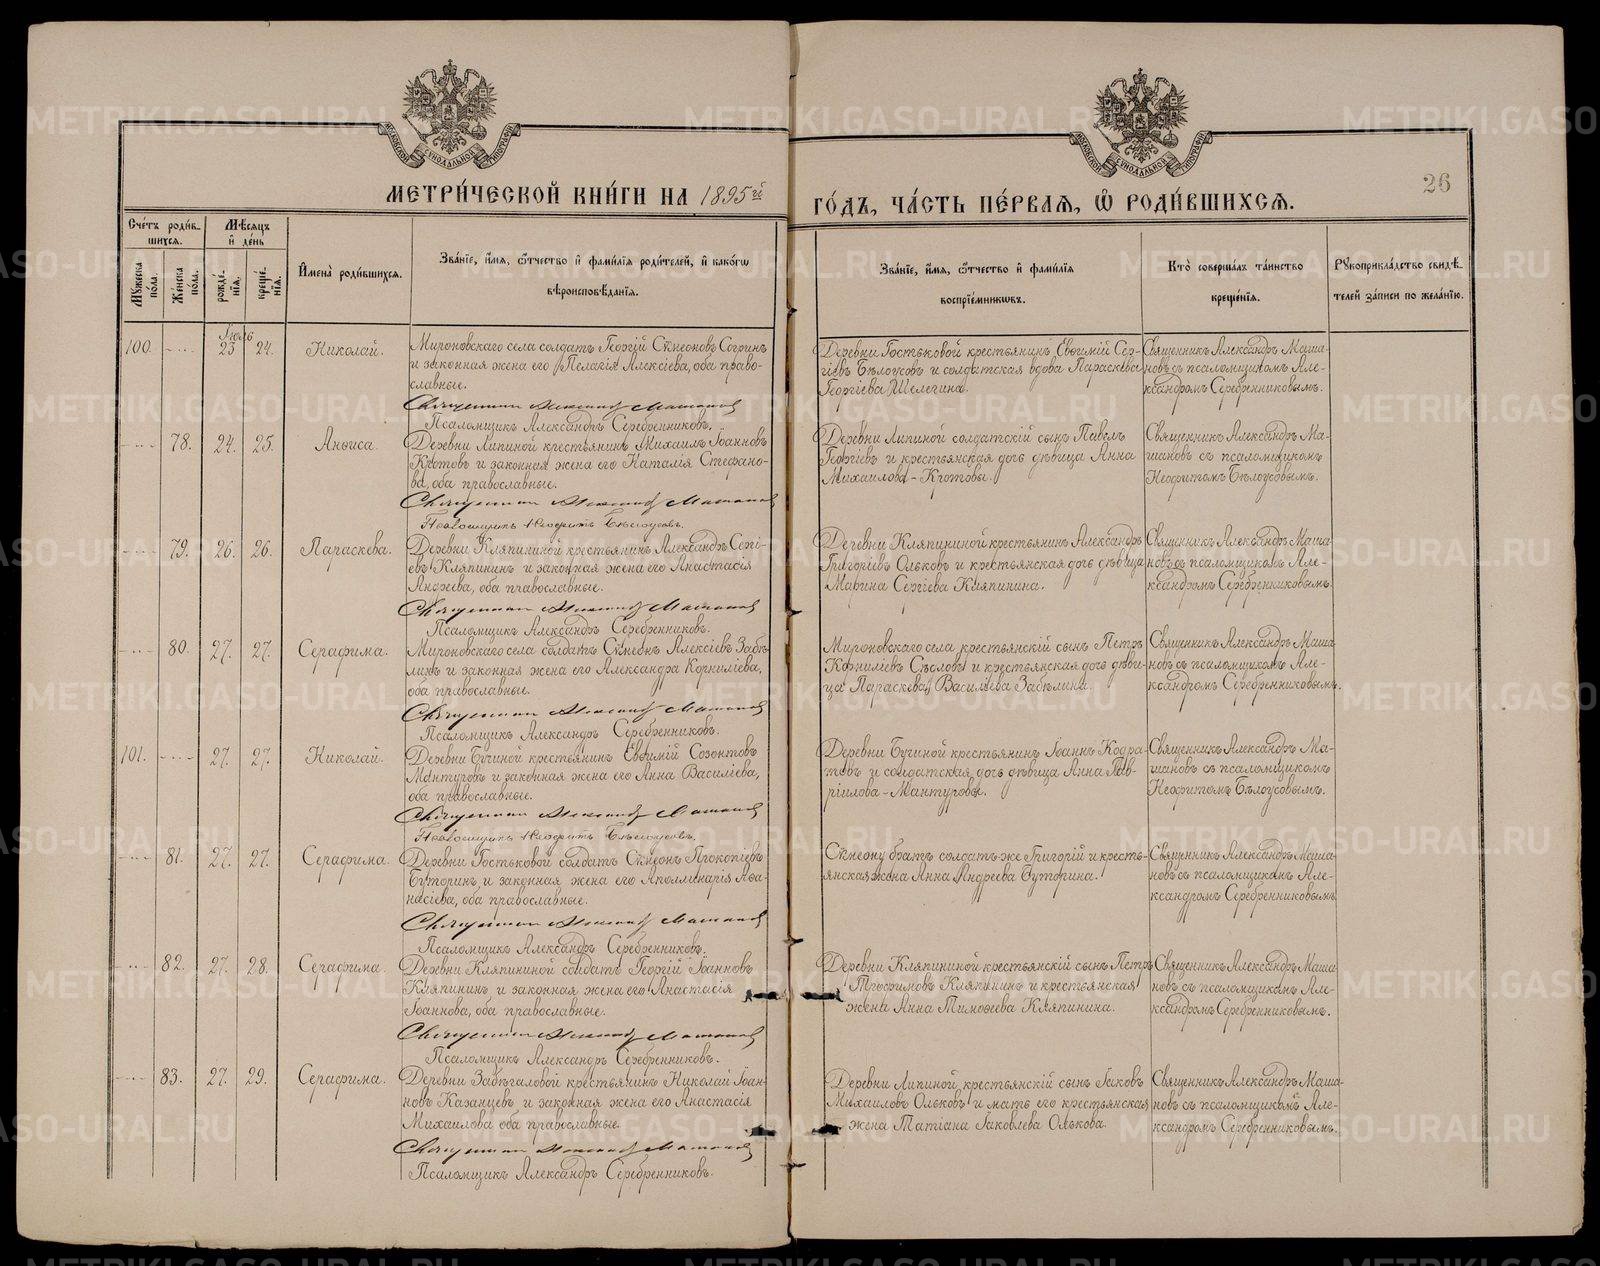 МОСКОВСКОЙ СѴНОДАЛЬНОЙ ТИПОГРАФІИ
МОСКОВСКОЙ СѴНОДАЛЬНОЙ ТИПОГРАФІИ
МЕТРИ́ЧЕСКОЙ КНИ́ГИ НА 1895й
ГО́ДЪ, ЧА́СТЬ ПЕ́РВАѦ, Ѽ РОДИ́ВШИХСѦ.
26
Сче́тъ роди́в-
шихся.
Мѣ́сяцъ
и҆ де́нь
Мꙋ́жеска по́ла.
Же́нска по́ла.
рожде́нїя.
креще́нїя.
И҆мена̀ роди́вшихся.
Зва́нїе, и҆́мя, ѻ҆́тчество и҆ фами́лїя роди́телей, и҆ како́гѡ
вѣроисповѣ́данїя.
Зва́нїе, и҆́мя, ѻ҆́тчество и҆ фами́лїя
воспрїе́мникѡвъ.
Кто̀ соверша́лъ та́инство
креще́нїя.
Рꙋкоприкла́дство свидѣ́-
телей за́писи по жела́нїю.
Іюль
100. 23 24. Николай.
Мироновскаго села солдатъ Георгій Сѵмеоновъ Согринъ
и законная жена его Пелагія Алексіева, оба право-
славные.
Священникъ Александръ Машановъ
Псаломщикъ Александръ Серебренниковъ.
Деревни Гостьковой крестьянинъ Евѳимій Сер-
гіевъ Бѣлоусовъ и солдатская вдова Параскева
Георгіева Шелегина.
Священникъ Александръ Маша-
новъ съ псаломщикомъ Але-
ксандромъ Серебренниковымъ.
78. 24. 25. Анѳиса.
Деревни Липиной крестьянинъ Михаилъ Іоанновъ
Кротовъ и законная жена его Наталія Стефано-
ва, оба православные.
Священникъ Александръ Машановъ
Псаломщикъ Неофитъ Бѣлоусовъ.
Деревни Липиной солдатскій сынъ Павелъ
Георгіевъ и крестьянская дочь дѣвица Анна
Михаилова - Кротовы.
Священникъ Александръ Ма-
шановъ съ псаломщикомъ
Неофитомъ Бѣлоусовымъ.
79. 26. 26. Параскева.
Деревни Кляпининой крестьянинъ Александръ Сергі-
евъ Кляпининъ и законная жена его Анастасія
Андреева, оба православные.
Священникъ Александръ Машановъ
Псаломщикъ Александръ Серебренниковъ.
Деревни Кляпининой крестьянинъ Александръ
Григоріевъ Ольковъ и крестьянская дочь дѣвица
Марина Сергіева Кляпинина.
Священникъ Александръ Маша-
новъ съ псаломщикомъ Але-
ксандромъ Серебренниковымъ.
80. 27. 27. Серафима.
Мироновскаго села солдатъ Сѵмеонъ Алексіевъ Забѣ-
линъ и законная жена его Александра Корниліева,
оба православные.
Священникъ Александръ Машановъ
Псаломщикъ Александръ Серебренниковъ.
Мироновскаго села крестьянскій сынъ Петръ
Корниліевъ Сысловъ и крестьянская дочь дѣви-
ца Параскева Василіева Забѣлина.
Священникъ Александръ Маша-
новъ съ псаломщикомъ Але-
ксандромъ Серебренниковымъ.
101. 27. 27. Николай.
Деревни Бучиной крестьянинъ Евѳимій Созонтовъ
Мантуровъ и законная жена его Анна Василіева,
оба православные.
Священникъ Александръ Машановъ
Псаломщикъ Неофитъ Бѣлоусовъ.
Деревни Бучиной крестьянинъ Іоаннъ Кодра-
товъ и солдатская дочь дѣвица Анна Гав-
ріилова - Мантуровы.
Священникъ Александръ Ма-
шановъ съ псаломщикомъ
Неофитомъ Бѣлоусовымъ.
81. 27. 27. Серафима.
Деревни Гостьковой солдатъ Сѵмеонъ Прокопіевъ
Буторинъ и законная жена его Аполлинарія Аѳа-
насіева, оба православные.
Священникъ Александръ Машановъ
Псаломщикъ Александръ Серебренниковъ.
Сѵмеону братъ солдатъ же Григорій и кресть-
янская жена Анна Андреева Буторина.
Священникъ Александръ Маша-
новъ съ псаломщикомъ Але-
ксандромъ Серебренниковымъ.
82. 27. 28. Серафима.
Деревни Кляпининой солдатъ Георгій Іоанновъ
Кляпининъ и законная жена его Анастасія
Іоаннова, оба православные.
Священникъ Александръ Машановъ
Псаломщикъ Александръ Серебренниковъ.
Деревни Кляпининой крестьянскій сынъ Петръ
Трофимовъ Кляпининъ и крестьянская
жена Анна Тимоѳеева Кляпинина.
Священникъ Александръ Маша-
новъ съ псаломщикомъ Але-
ксандромъ Серебренниковымъ.
83. 27. 29. Серафима.
Деревни Забѣгаловой крестьянинъ Николай Іоан-
новъ Казанцевъ и законная жена его Анастасія
Михаилова оба православные.
Священникъ Александръ Машановъ
Псаломщикъ Александръ Серебренниковъ.
Деревни Липиной крестьянскій сынъ Іаковъ
Михаиловъ Ольковъ и мать его крестьянская
жена Татіана Іаковлева Олькова.
Священникъ Александръ Маша-
новъ съ псаломщикомъ Але-
ксандромъ Серебренниковымъ.
METRIKI.GASO-URAL.RU